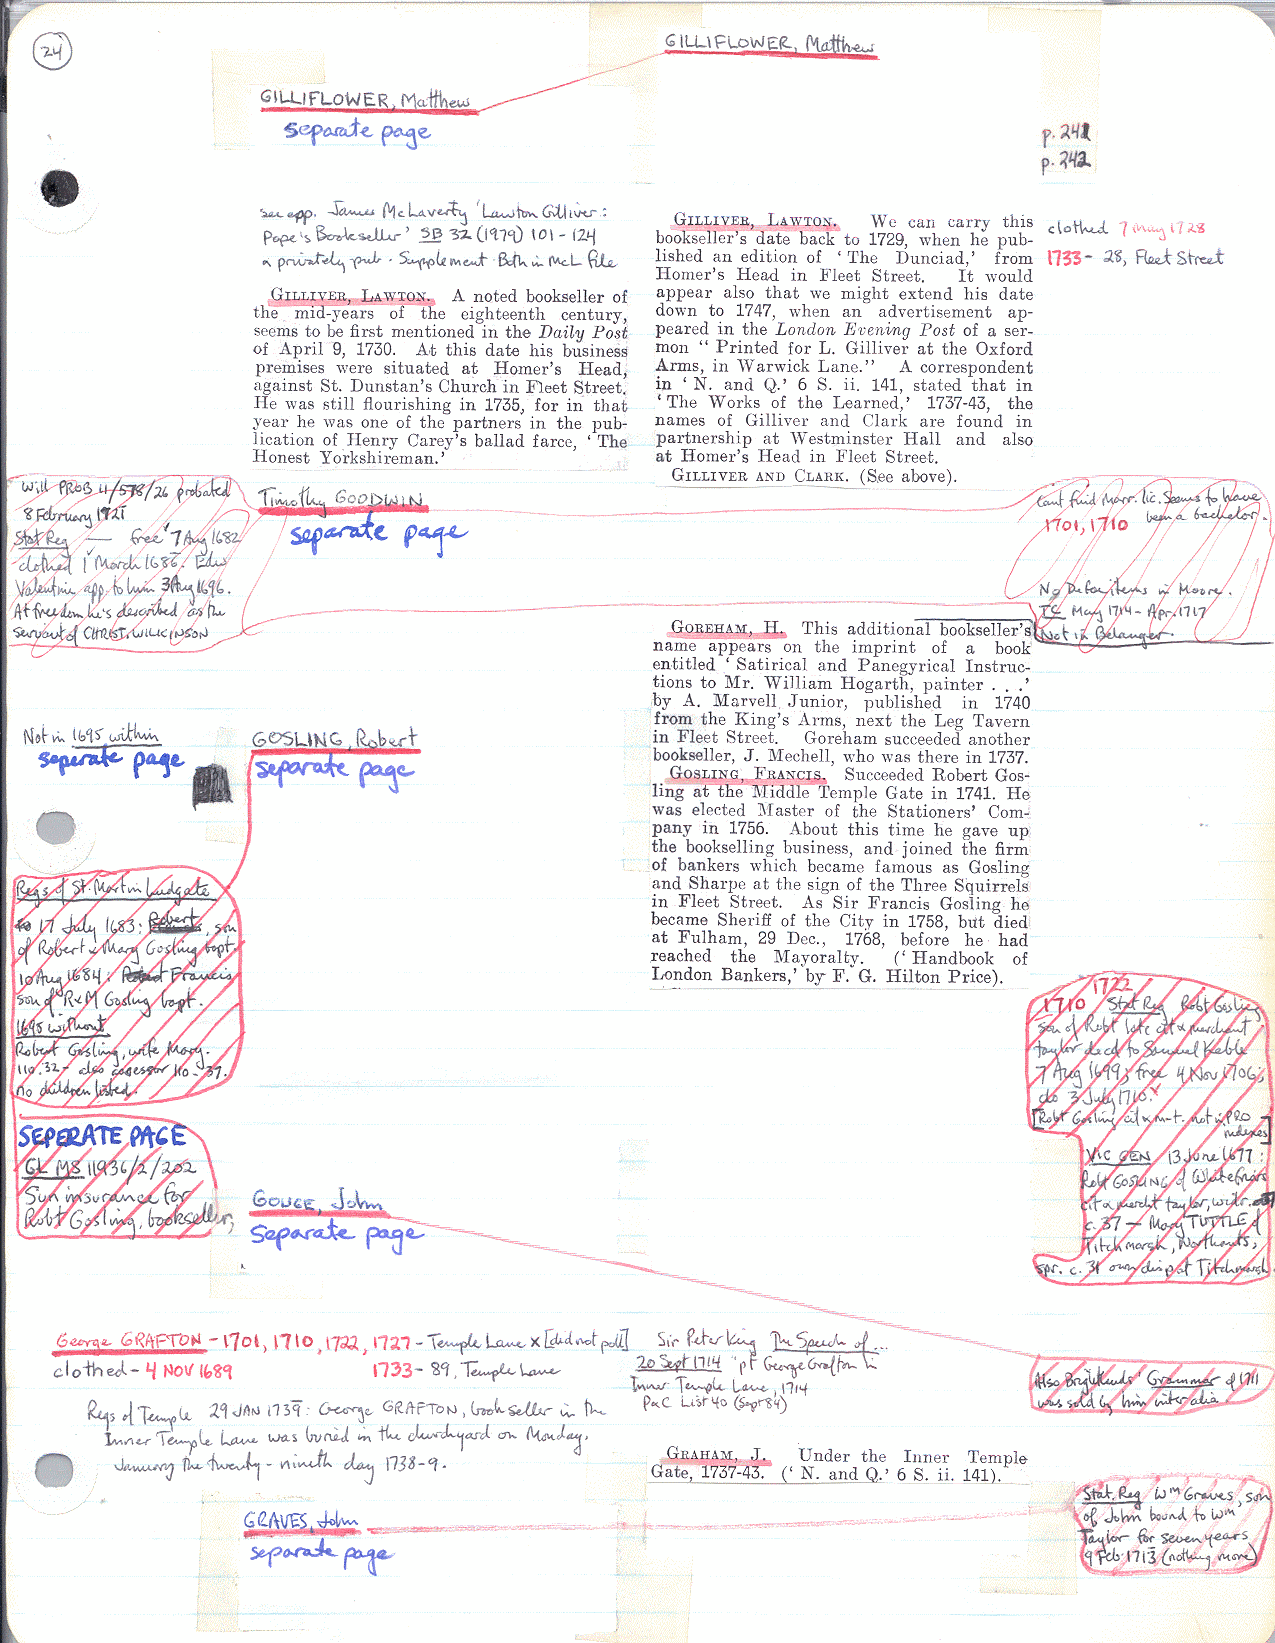 24
GILLIFLOWER, Matthew
GILLIFLOWER, Matthew
separate page
p. 241
p. 242
see app. James McLaverty 'Lawton Gilliver:
Pope's Bookseller' SB 32 (1979) 101-124
a privately pub. Supplement. Both in McL file
GILLIVER, LAWTON. A noted bookseller of
the mid-years of the eighteenth century,
seems to be first mentioned in the Daily Post
of April 9, 1730. At this date his business
premises were situated at Homer's Head,
against St. Dunstan's Church in Fleet Street.
He was still flourishing in 1735, for in that
year he was one of the partners in the pub-
lication of Henry Carey's ballad farce, 'The
Honest Yorkshireman.'
GILLIVER, LAWTON. We can carry this
bookseller's date back to 1729, when he pub-
lished an edition of 'The Dunciad,' from
Homer's Head in Fleet Street. It would
appear also that we might extend his date
down to 1747, when an advertisement ap-
peared in the London Evening Post of a ser-
mon "Printed for L. Gilliver at the Oxford
Arms, in Warwick Lane." A correspondent
in 'N. and Q.' 6 S. ii. 141, stated that in
'The Works of the Learned,' 1737-43, the
names of Gilliver and Clark are found in
partnership at Westminster Hall and also
at Homer's Head in Fleet Street.
GILLIVER AND CLARK. (See above).
clothed 7 May 1728
1733 - 28, Fleet Street
Will PROB 4/578/26 probated
8 February 1721
Stat Reg — free 7 Aug 1682
clothed 1 March 1686. Edw
Valentine app. to him 3 Aug 1696.
At freedom he's described as the
servant of CHRIST. WILKINSON
Timothy GOODWIN
separate page
Cant find marr. lic. Seems to have
1701, 1710 been a bachelor.
No Defoe items in Moore.
TC May 1714 - Apr. 1717
Not in Belanger.
GOREHAM, H. This additional bookseller's
name appears on the imprint of a book
entitled 'Satirical and Panegyrical Instruc-
tions to Mr. William Hogarth, painter . . .'
by A. Marvell Junior, published in 1740
from the King's Arms, next the Leg Tavern
in Fleet Street. Goreham succeeded another
bookseller, J. Mechell, who was there in 1737.
GOSLING, FRANCIS. Succeeded Robert Gos-
ling at the Middle Temple Gate in 1741. He
was elected Master of the Stationers' Com-
pany in 1756. About this time he gave up
the bookselling business, and joined the firm
of bankers which became famous as Gosling
and Sharpe at the sign of the Three Squirrels
in Fleet Street. As Sir Francis Gosling he
became Sheriff of the City in 1758, but died
at Fulham, 29 Dec., 1768, before he had
reached the Mayoralty. ('Handbook of
London Bankers,' by F. G. Hilton Price).
Not in 1695 within
seperate page
GOSLING, Robert
separate page
Regs of St. Martin Ludgate
17 July 1683: Robert, son
of Robert & Mary Gosling bapt.
10 Aug 1684: Francis
son of R&M Gosling bapt.
1695 without
Robert Gosling, wife Mary.
110.32 - also assessor 110-37.
no children listed.
SEPERATE PAGE
GL MS 11936/2/202
Sun insurance for
Robt Gosling, bookseller,
1722
1710 Stat Reg Robt Gosling
son of Robt late cit & merchant
taylor decd to Samuel Keble
7 Aug 1699; free 4 Nov 1706;
clo 3 July 1710.
[Robt Gosling cit & m-t. not in PRO
indexes]
VIC GEN 13 June 1677:
Robt GOSLING of Whitefriars
cit & mercht taylor, widr.
c.37 — Mary TUTTLE of
Titchmarsh, Northants,
spr. c. 31 own disp at Titchmarsh.
GOUGE, John
separate page
George GRAFTON - 1701, 1710, 1722, 1727 - Temple Lane X [did not poll]
clothed - 4 NOV 1689
1733 - 89, Temple Lane
Sir Peter King The Speech of...
20 Sept 1714 pt George Grafton in
Inner Temple Lane, 1714
P&C List 40 (Sept 84)
Also Brightlands' Grammar of 1711
was sold by him inter alia.
Regs of Temple 29 JAN 1739: George GRAFTON, bookseller in the
Inner Temple Lane was buried in the churchyard on Monday,
January the twenty-nineth day 1738-9.
GRAHAM, J. Under the Inner Temple
Gate, 1737-43. ('N. and Q.' 6 S. ii. 141).
GRAVES, John
separate page
Stat. Reg Wm Graves, son
of John bound to Wm
Taylor for seven years
9 Feb. 1713 (nothing more)